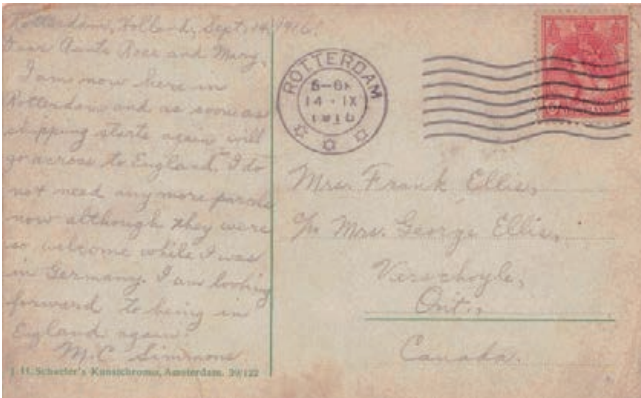 Rotterdam, Holland, Sept. 14, 1916.
Dear Aunts Rose and Mary,
I am now here in
Rotterdam and as soon as
shipping starts again will
go across to England. I do
not need any more parcels
now although they were
so welcome while I was
in Germany. I am looking
forward to being in
England again.
M.C. Simmons
J. H. Schaefer's Kunstchromo, Amsterdam. 39/122
ROTTERDAM
14 · IX
191
Mrs. Frank Ellis,
c/o Mrs. George Ellis,
Verschoyle,
Ont.,
Canada.